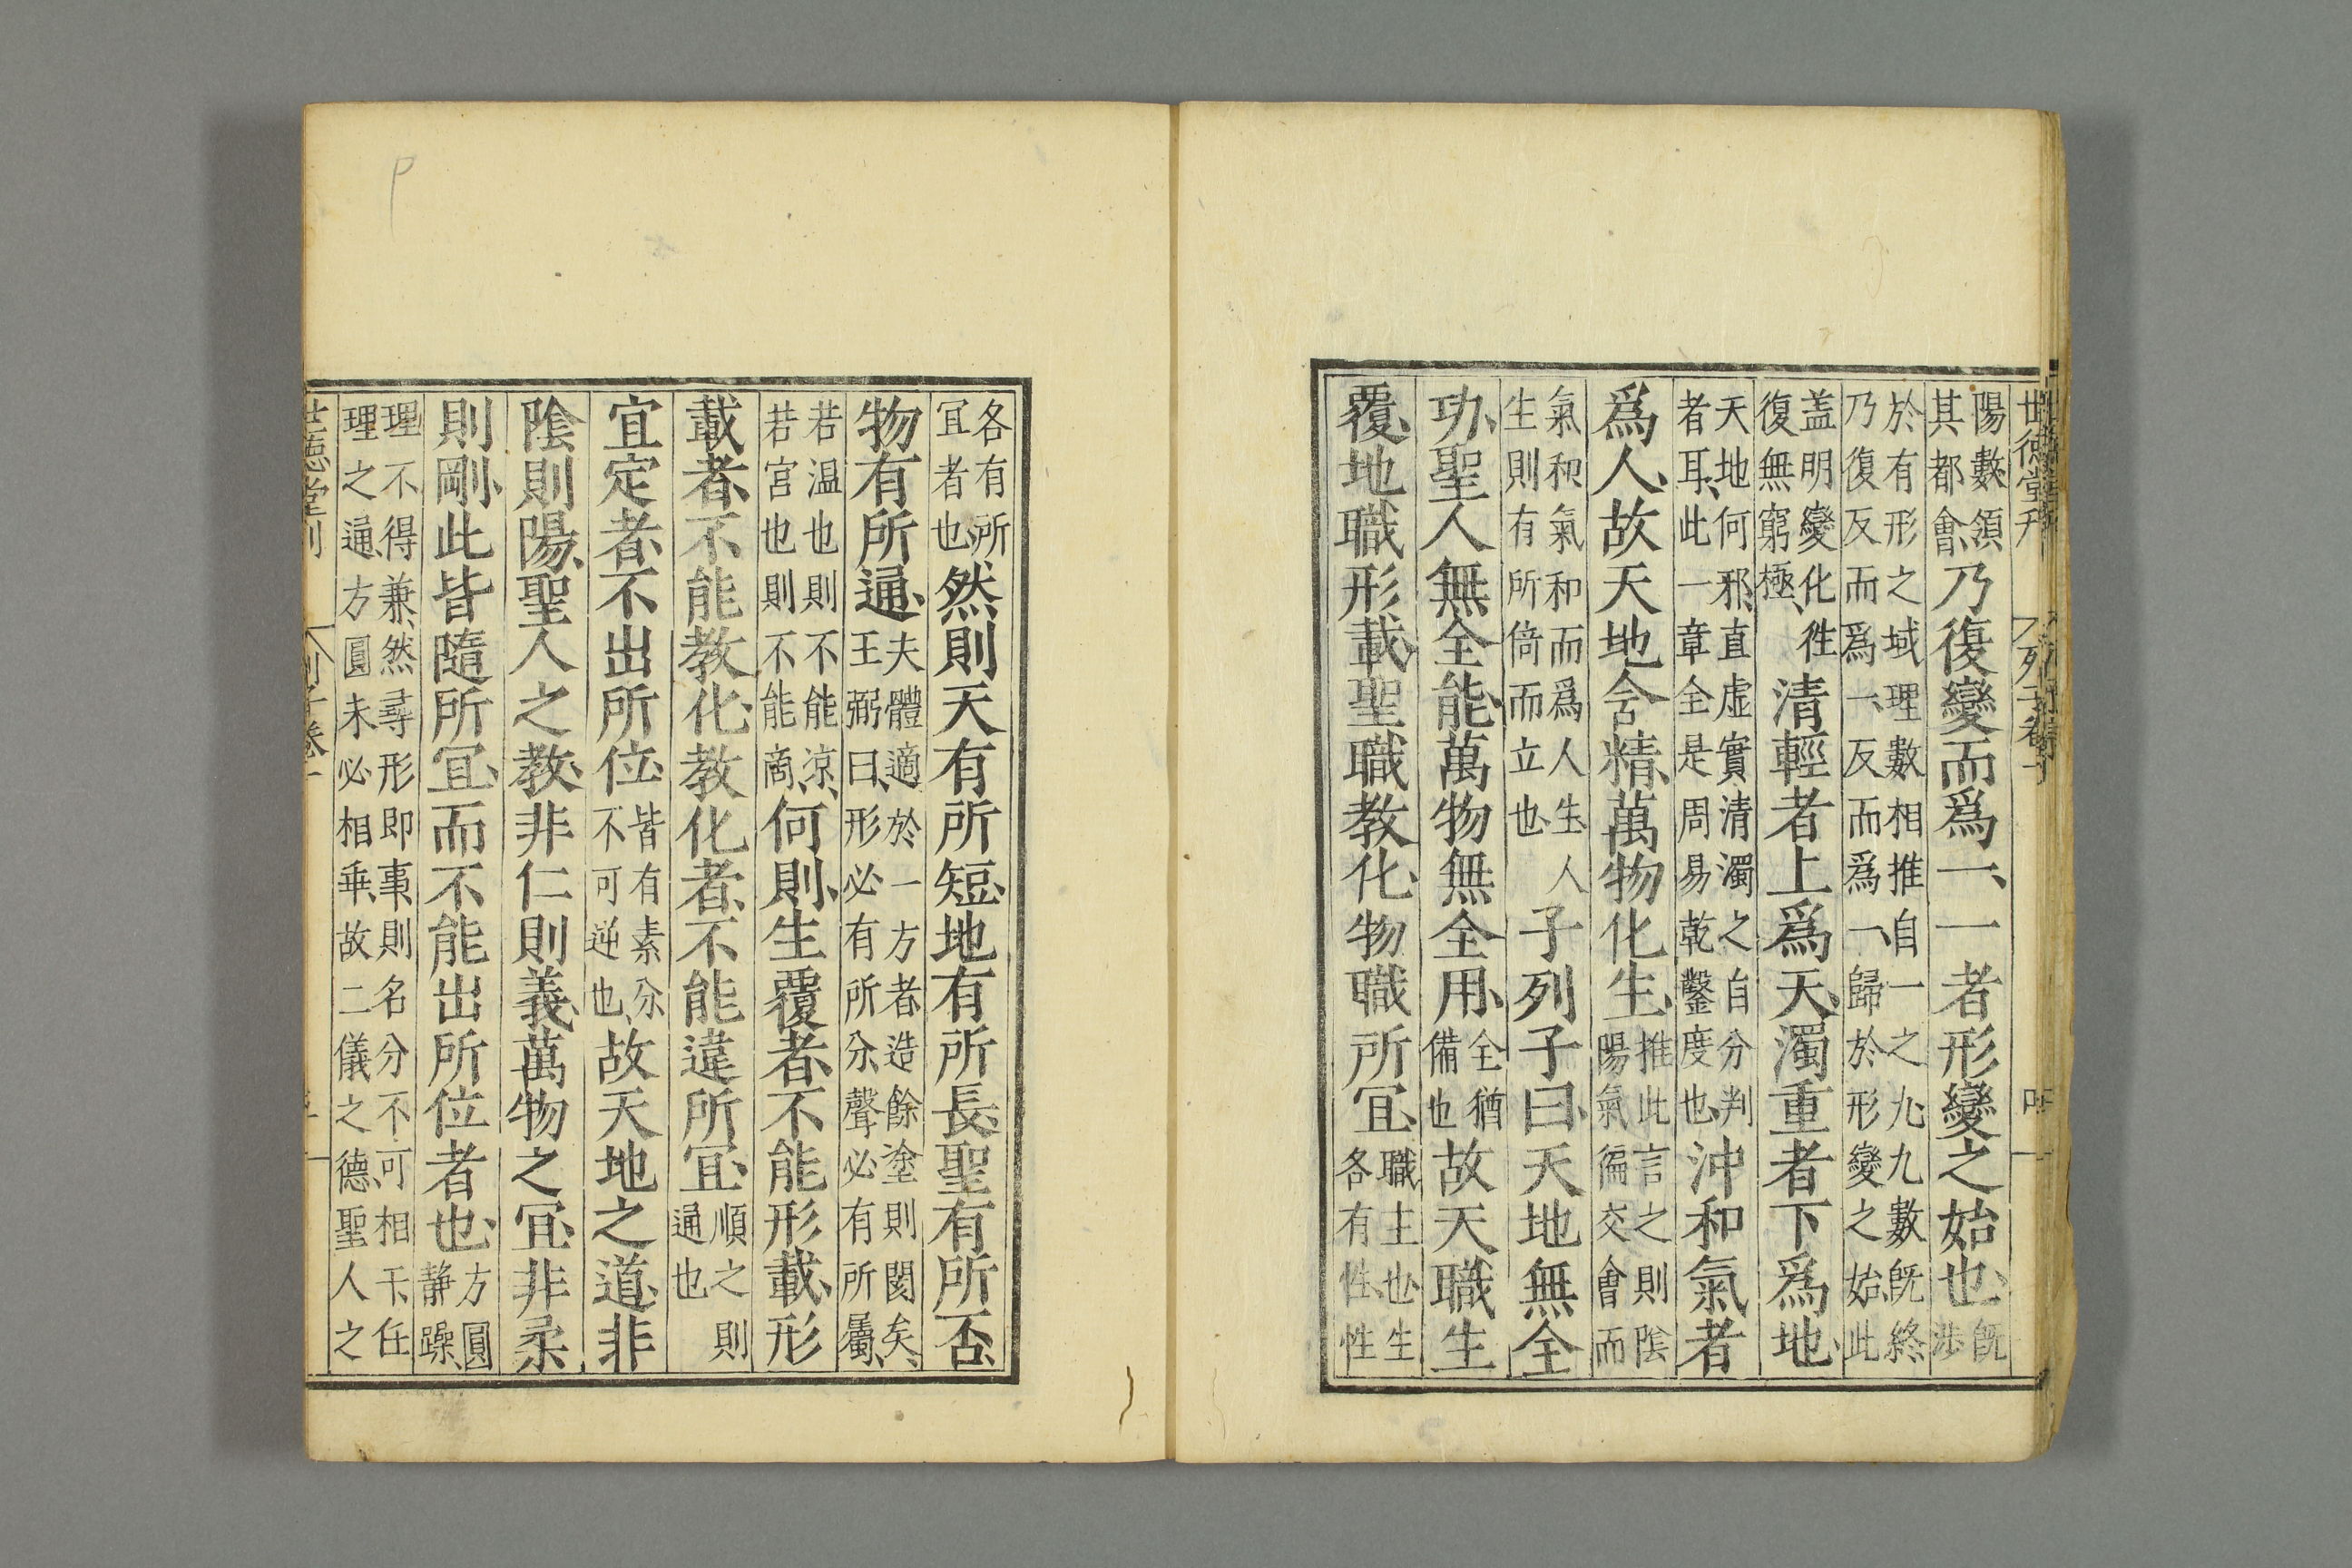 世德堂刊 列子卷一 四
陽數領其都會乃復變而爲一、一者形變之始也、旣涉
於有形之域理數相推自一之九、九數旣終乃復反而爲一、反而爲一、歸於形變之始、此
盖明變化徃復無窮極、清輕者上爲天、濁重者下爲地、
天地何邪、直虛實清濁之自分判者耳、此一章全是周易乾鑿度也、沖和氣者
爲人、故天地含精、萬物化生、推此言之則隂陽氣徧交會而
氣和氣和而爲人生、人生則有所倚而立也、子列子曰、天地無全
功、聖人無全能、萬物無全用、全猶備也故天職生
覆、地職形載、聖職教化、物職所冝、職主也、生各有性、性
各有所冝者也、然則天有所短、地有所長、聖有所否、
物有所通、夫體適於一方者、造餘塗則閡矣、王弼曰、形必有所分、聲必有所屬、
若温也則不能凉、若宮也則不能商、何則、生覆者、不能形載、形
載者、不能教化、教化者、不能違所冝、順之則通也
宜定者、不出所位、皆有素分不可逆也、故天地之道、非
隂則陽、聖人之教、非仁則義、萬物之冝、非柔
則剛、此皆隨所冝、而不能出所位者也、方圓静躁、
理不得兼、然尋形即事、則名分不可相干、任理之通、方圓未必相乖、故二儀之德、聖人之
世德堂刊 列子卷一